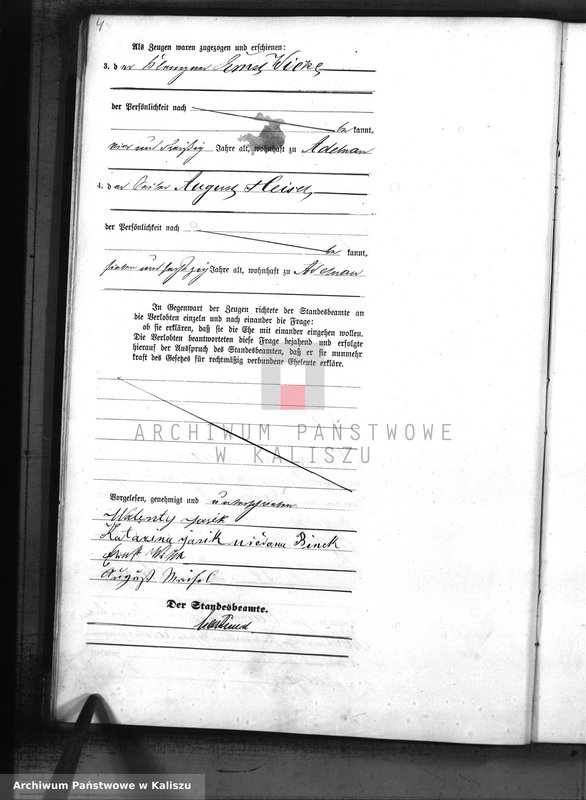 4
Als Zeugen waren zugezogen und erschienen:
3. der Klempner Ernst Wicke
der Persönlichkeit nach
be kannt,
vier und dreißig Jahre alt, wohnhaft zu Adelnau
4. der August Heisel
der Persönlichkeit nach
be kannt,
sieben und sechzig Jahre alt, wohnhaft zu Adelnau
In Gegenwart der Zeugen richtete der Standesbeamte an
die Verlobten einzeln und nach einander die Frage:
ob sie erklären, daß sie die Ehe mit einander eingehen wollen.
Die Verlobten beantworteten diese Frage bejahend und erfolgte
hierauf der Ausspruch des Standesbeamten, daß er sie nunmehr
kraft des Gesetzes für rechtmäßig verbundene Eheleute erkläre.
ARCHIWUM PAŃSTWOWE
W KALISZU
Vorgelesen, genehmigt und unterschrieben
Walenty Jasik
Katarzina Jasik
Ernst
August
Der Standesbeamte.
Archiwum Państwowe w Kaliszu